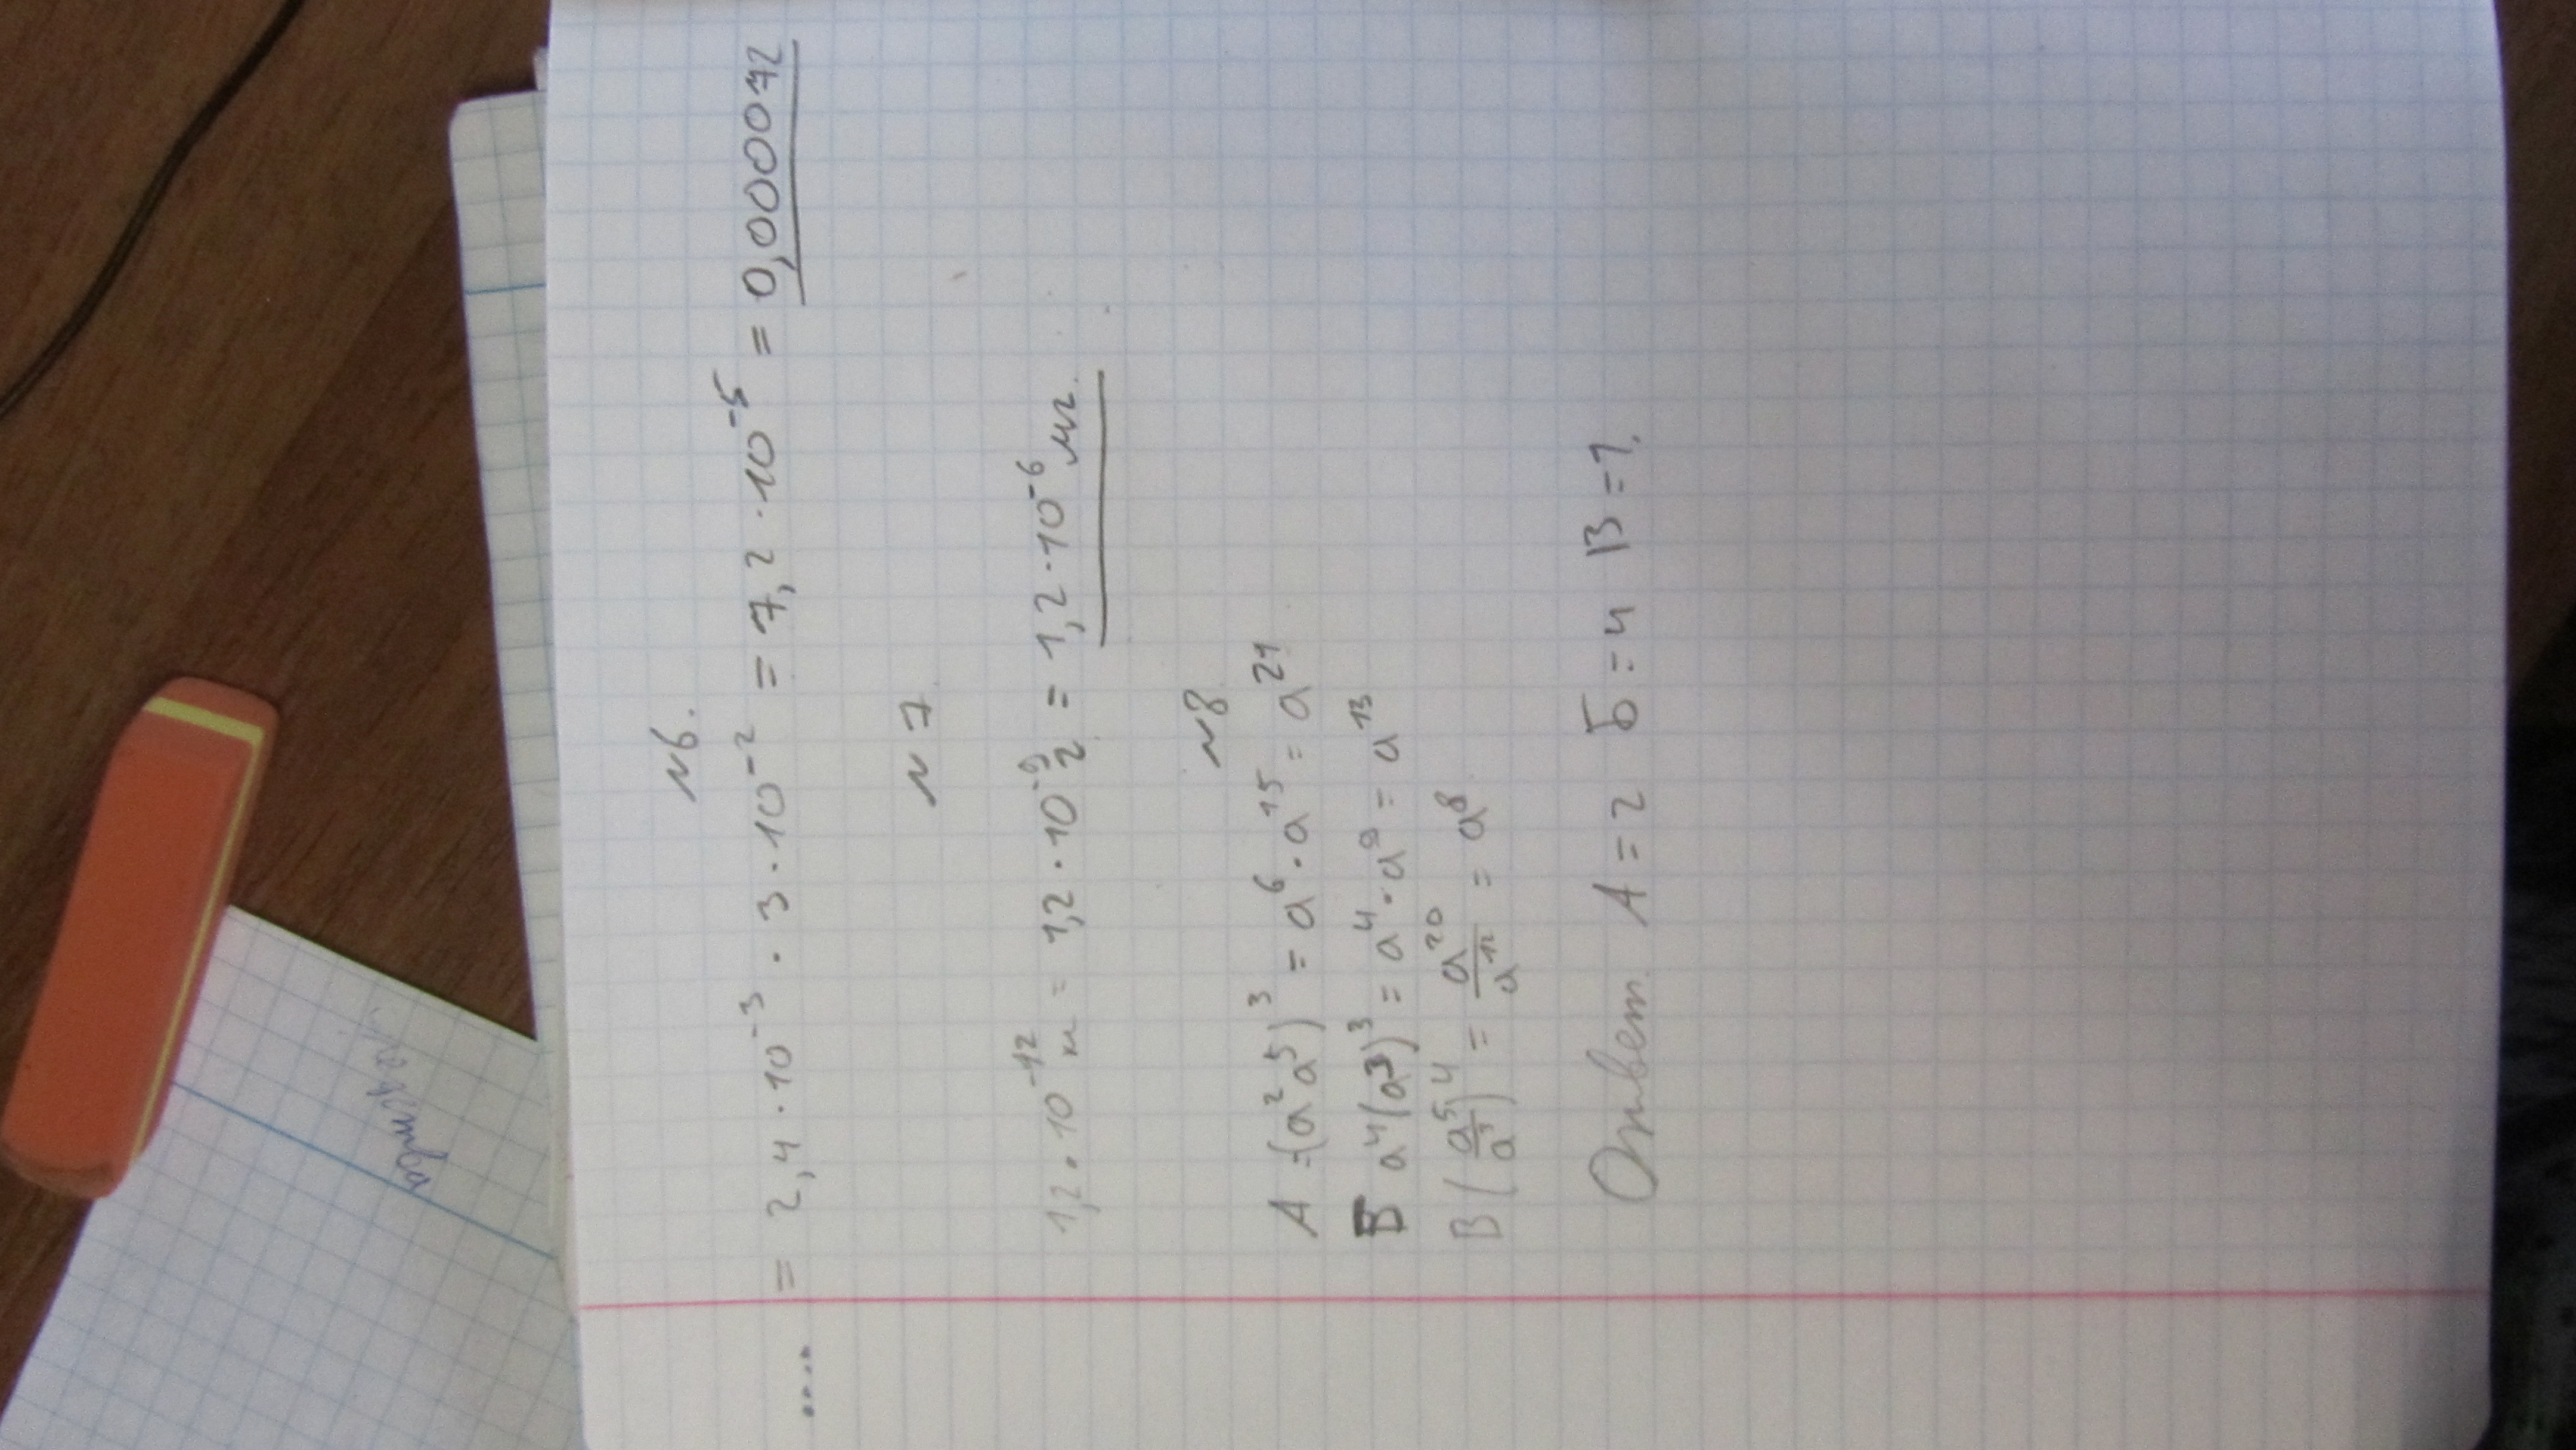 №6.
..... = 2,4 · 10⁻³ · 3 · 10⁻² = 7,2 · 10⁻⁵ = 0,0000072
№7.
1,2 · 10⁻¹² = 1,2 · 10⁻⁹ г = 1,2 · 10⁻⁶ мг.
№8
А (a²a⁵)³ = a⁶ · a¹⁵ = a²¹
Б a⁴(a³)³ = a⁴ · a⁹ = a¹³
В (a⁵/a³)⁴ = a²⁰/a¹² = a⁸
Ответ А = 2 Б = 4 В = 1.